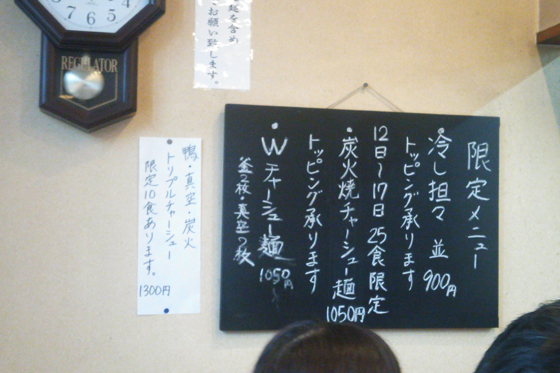 限定メニュー
・冷し担々 並 900円
トッピング承ります
12日～17日 25食限定
・炭火焼チャーシュー麺 1050円
トッピング承ります
・Wチャーシュー麺 1050円
釜2枚・真空2枚
鴨・真空・炭火
トリプルチャーシュー
限定10食あります。
1300円
起を含め
お願い致します。
REGULATOR
5
6
7
8